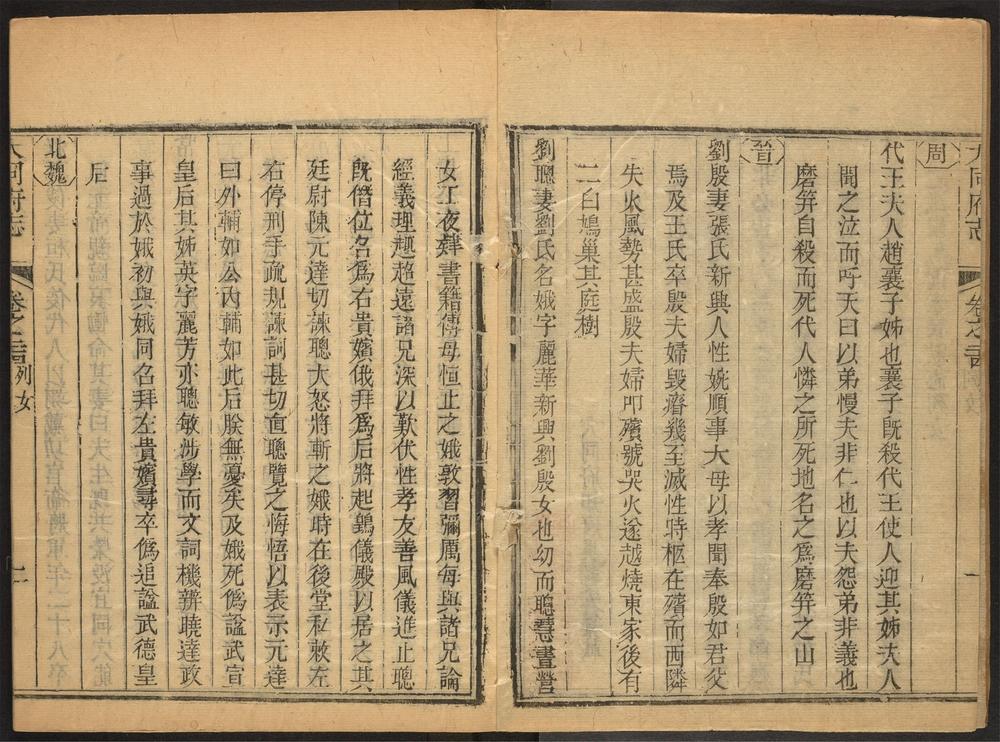 大同府志 卷之
周
代王夫人趙襄子姊也襄子旣殺代王使人迎其姊夫人
聞之泣而呼天曰以弟慢夫非仁也以夫怨弟非義也
磨笄自殺而死代人憐之所死地名之爲磨笄之山
晉
劉殷妻張氏新興人性婉順事大母以孝聞奉殷如君父
焉及王氏卒殷夫婦毀瘠幾至滅性時柩在殯而西隣
失火風勢甚盛殷夫婦叩殯號哭火遂越燒東家後有
二白鳩巢其庭樹
劉聰妻劉氏名娥字麗華新興劉殷女也幼而聰慧晝營
女工夜肄書籍傅母恒止之娥敦習彌厲每與諸兄論
經義理趣超遠諸兄深以歎伏性孝友善風儀進止聰
旣僭位名爲右貴嬪俄拜爲后將起䳨儀殿以居之其
廷尉陳元達切諫聰大怒將斬之娥時在後堂私敕左
右停刑手疏規諫詞甚切直聰覽之悔悟以表示元達
曰外輔如公內輔如此后朕無憂矣及娥死僞諡武宣
皇后其姊英字麗芳亦聰敏涉學而文詞機辨曉達政
事過於娥初與娥同召拜左貴嬪尋卒僞追諡武德皇
后
北魏
大同府志 卷之 列女